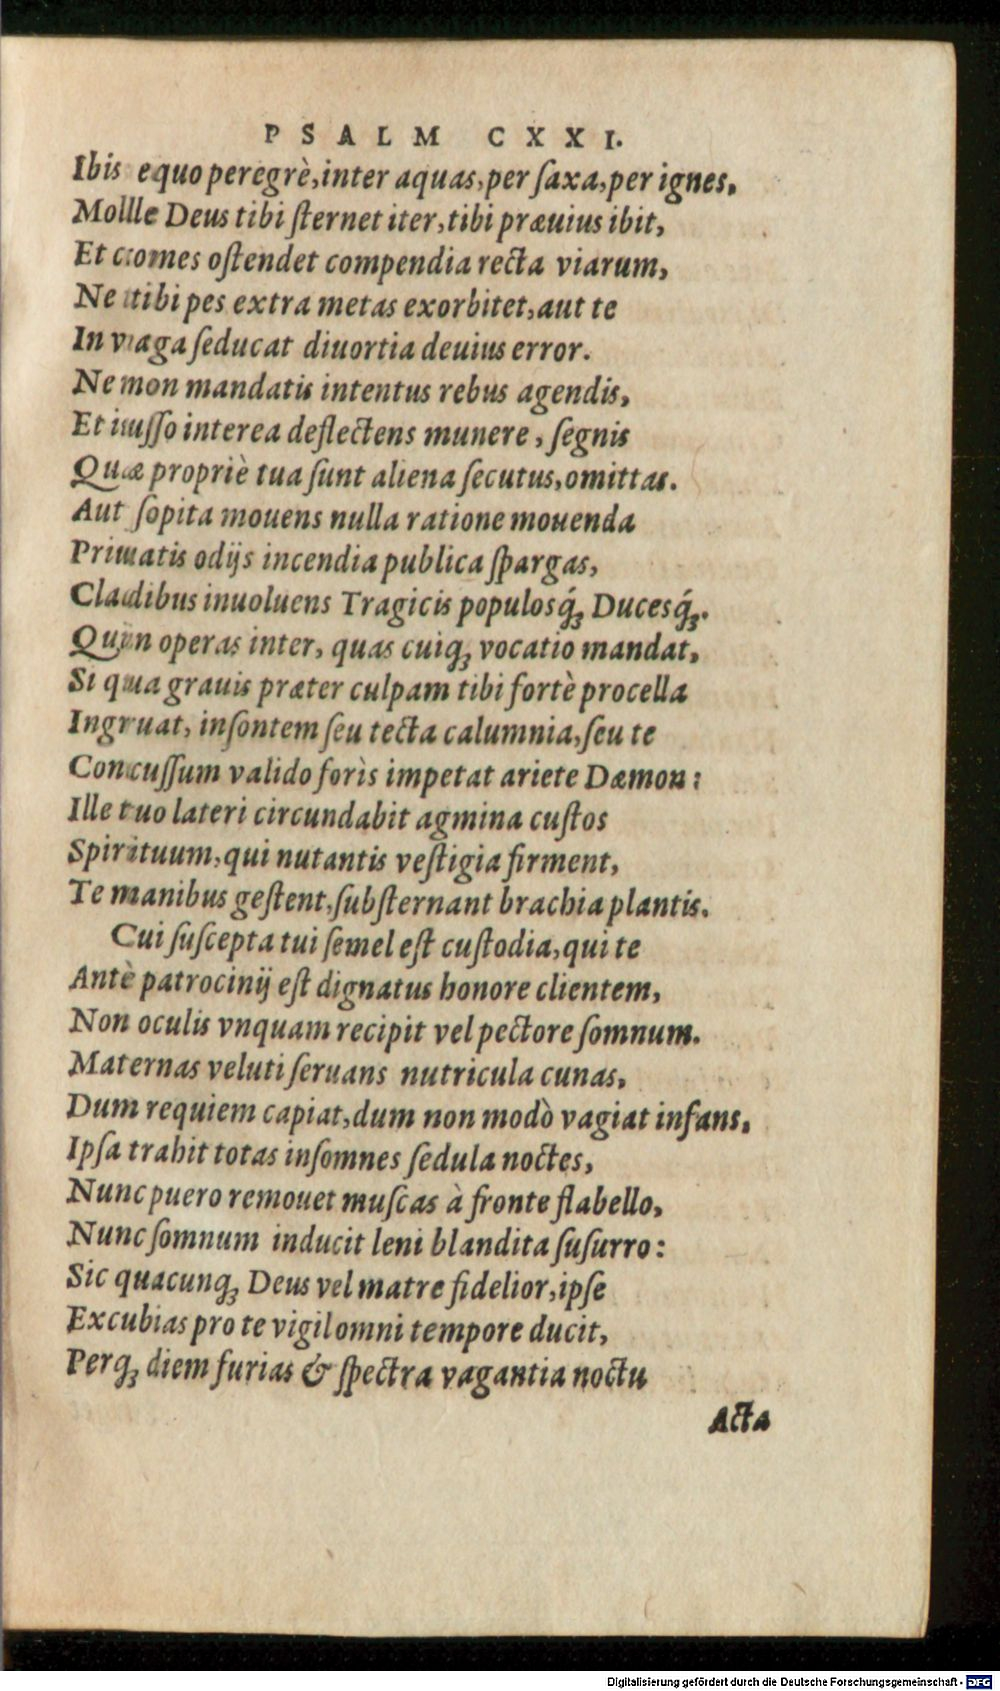 PSALM CXXI.
Ibis equo peregrè, inter aquas, per ſaxa, per ignes,
Molle Deus tibi ſternet iter, tibi præuius ibit,
Et comes oſtendet compendia recta viarum,
Ne tibi pes extra metas exorbitet, aut te
In vaga ſeducat diuortia deuius error.
Ne non mandatis intentus rebus agendis,
Et iuſſo interea deflectens munere, ſegnis
Quæ propriè tua ſunt aliena ſecutus, omittas.
Aut ſopita mouens nulla ratione mouenda
Priuatis odijs incendia publica ſpargas,
Cladibus inuoluens Tragicis populosq́ꝫ Ducesq́ꝫ.
Quin operas inter, quas cuiqꝫ vocatio mandat,
Si qua grauis præter culpam tibi fortè procella
Ingruat, inſontem ſeu tecta calumnia, ſeu te
Concuſſum valido forìs impetat ariete Dæmon:
Ille tuo lateri circundabit agmina cuſtos
Spirituum, qui nutantis veſtigia firment,
Te manibus geſtent, ſubſternant brachia plantis.
Cui ſuſcepta tui ſemel eſt cuſtodia, qui te
Antè patrocinij eſt dignatus honore clientem,
Non oculis vnquam recipit vel pectore ſomnum.
Maternas veluti ſeruans nutricula cunas,
Dum requiem capiat, dum non modò vagiat infans,
Ipſa trahit totas inſomnes ſedula noctes,
Nunc puero remouet muſcas à fronte flabello,
Nunc ſomnum inducit leni blandita ſuſurro:
Sic quacunqꝫ Deus vel matre fidelior, ipſe
Excubias pro te vigil omni tempore ducit,
Perqꝫ diem furias & ſpectra vagantia noctu
Acta
Digitalisierung gefördert durch die Deutsche Forschungsgemeinschaft - DFG